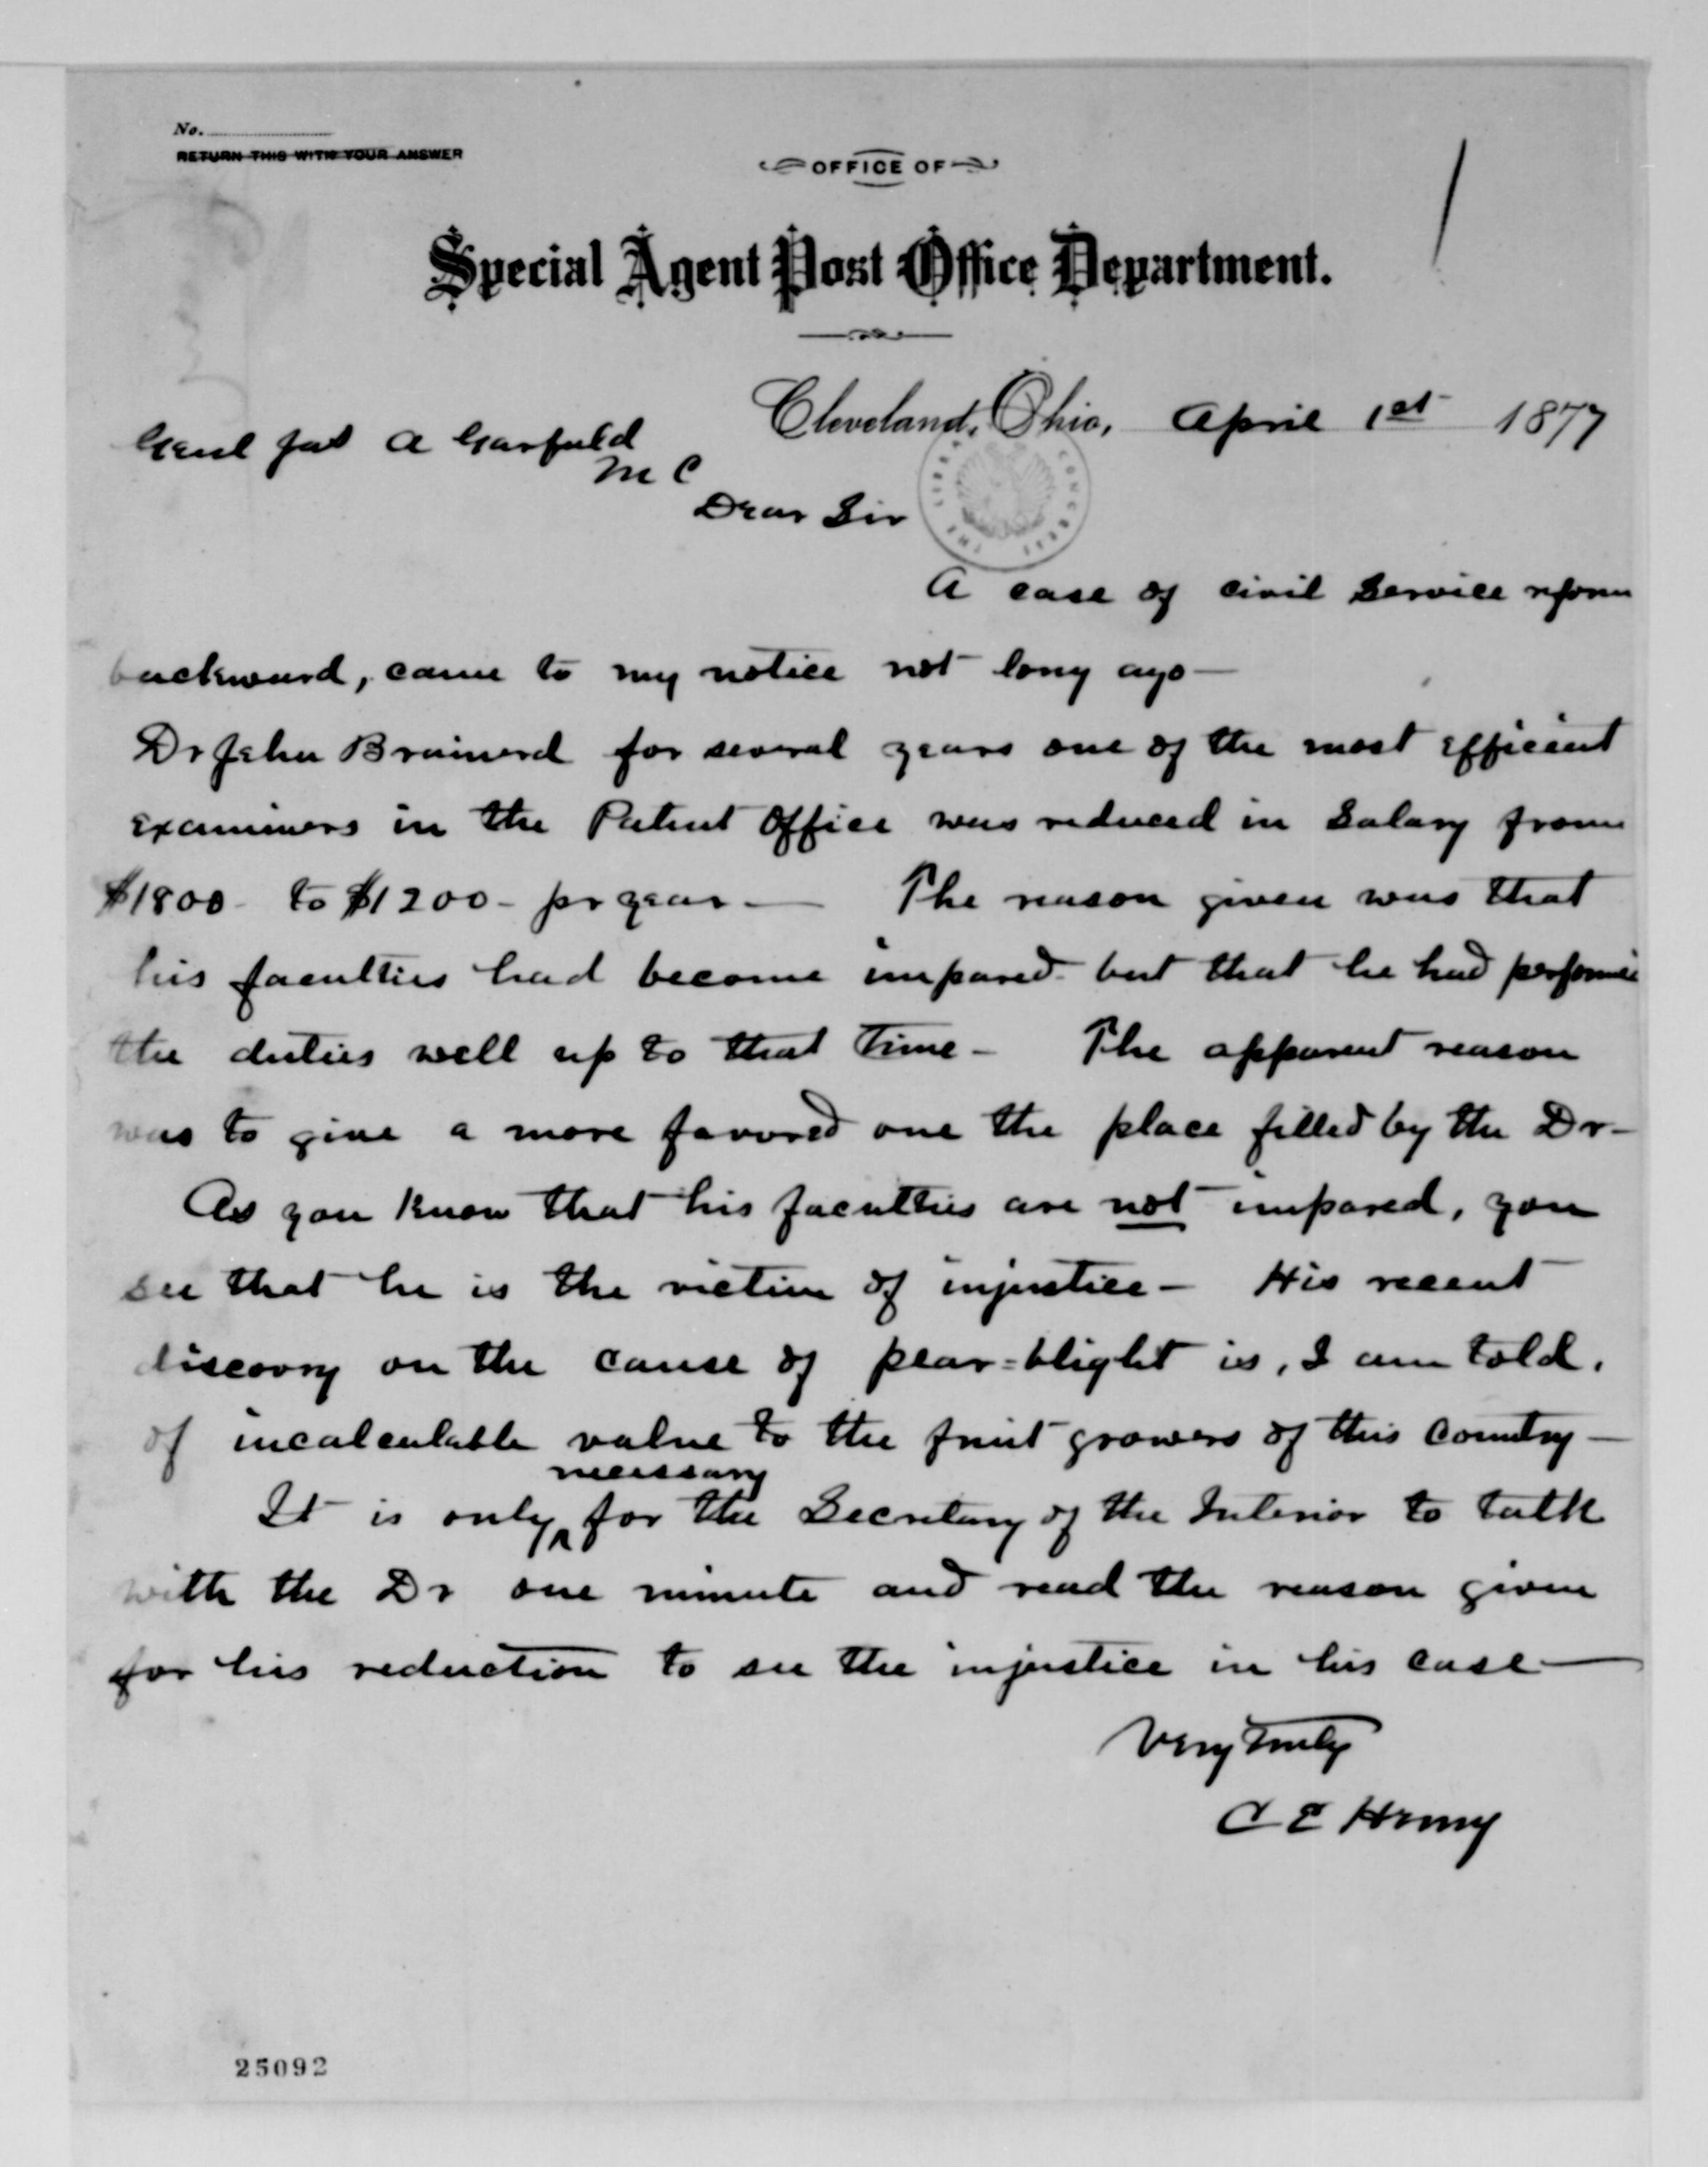 No.
RETURN THIS WITH YOUR ANSWER
OFFICE OF
Special Agent Post Office Department.
Cleveland, Ohio, April 1st 1877
Genl Jas A Garfield
M C
Dear Sir
A case of civil service reform
backward, came to my notice not long ago —
Dr John Brainerd for several years one of the most efficient
examiners in the Patent Office was reduced in Salary from
$1800- to $1200- pr year — The reason given was that
his faculties had become impared - but that he had performed
the duties well up to that time - The apparent reason
was to give a more favored one the place filled by the Dr -
As you know that his faculties are not impared, you
see that he is the victim of injustice - His recent
discovry on the cause of pear-blight is, I am told,
of incalculable value to the fruit growers of this Country —
necessary
It is only ^ for the Secretary of the Interior to talk
with the Dr one minute and read the reason given
for his reduction to see the injustice in his case —
Very truly
C E Henry
THE LIBRARY CONGRESS
25092